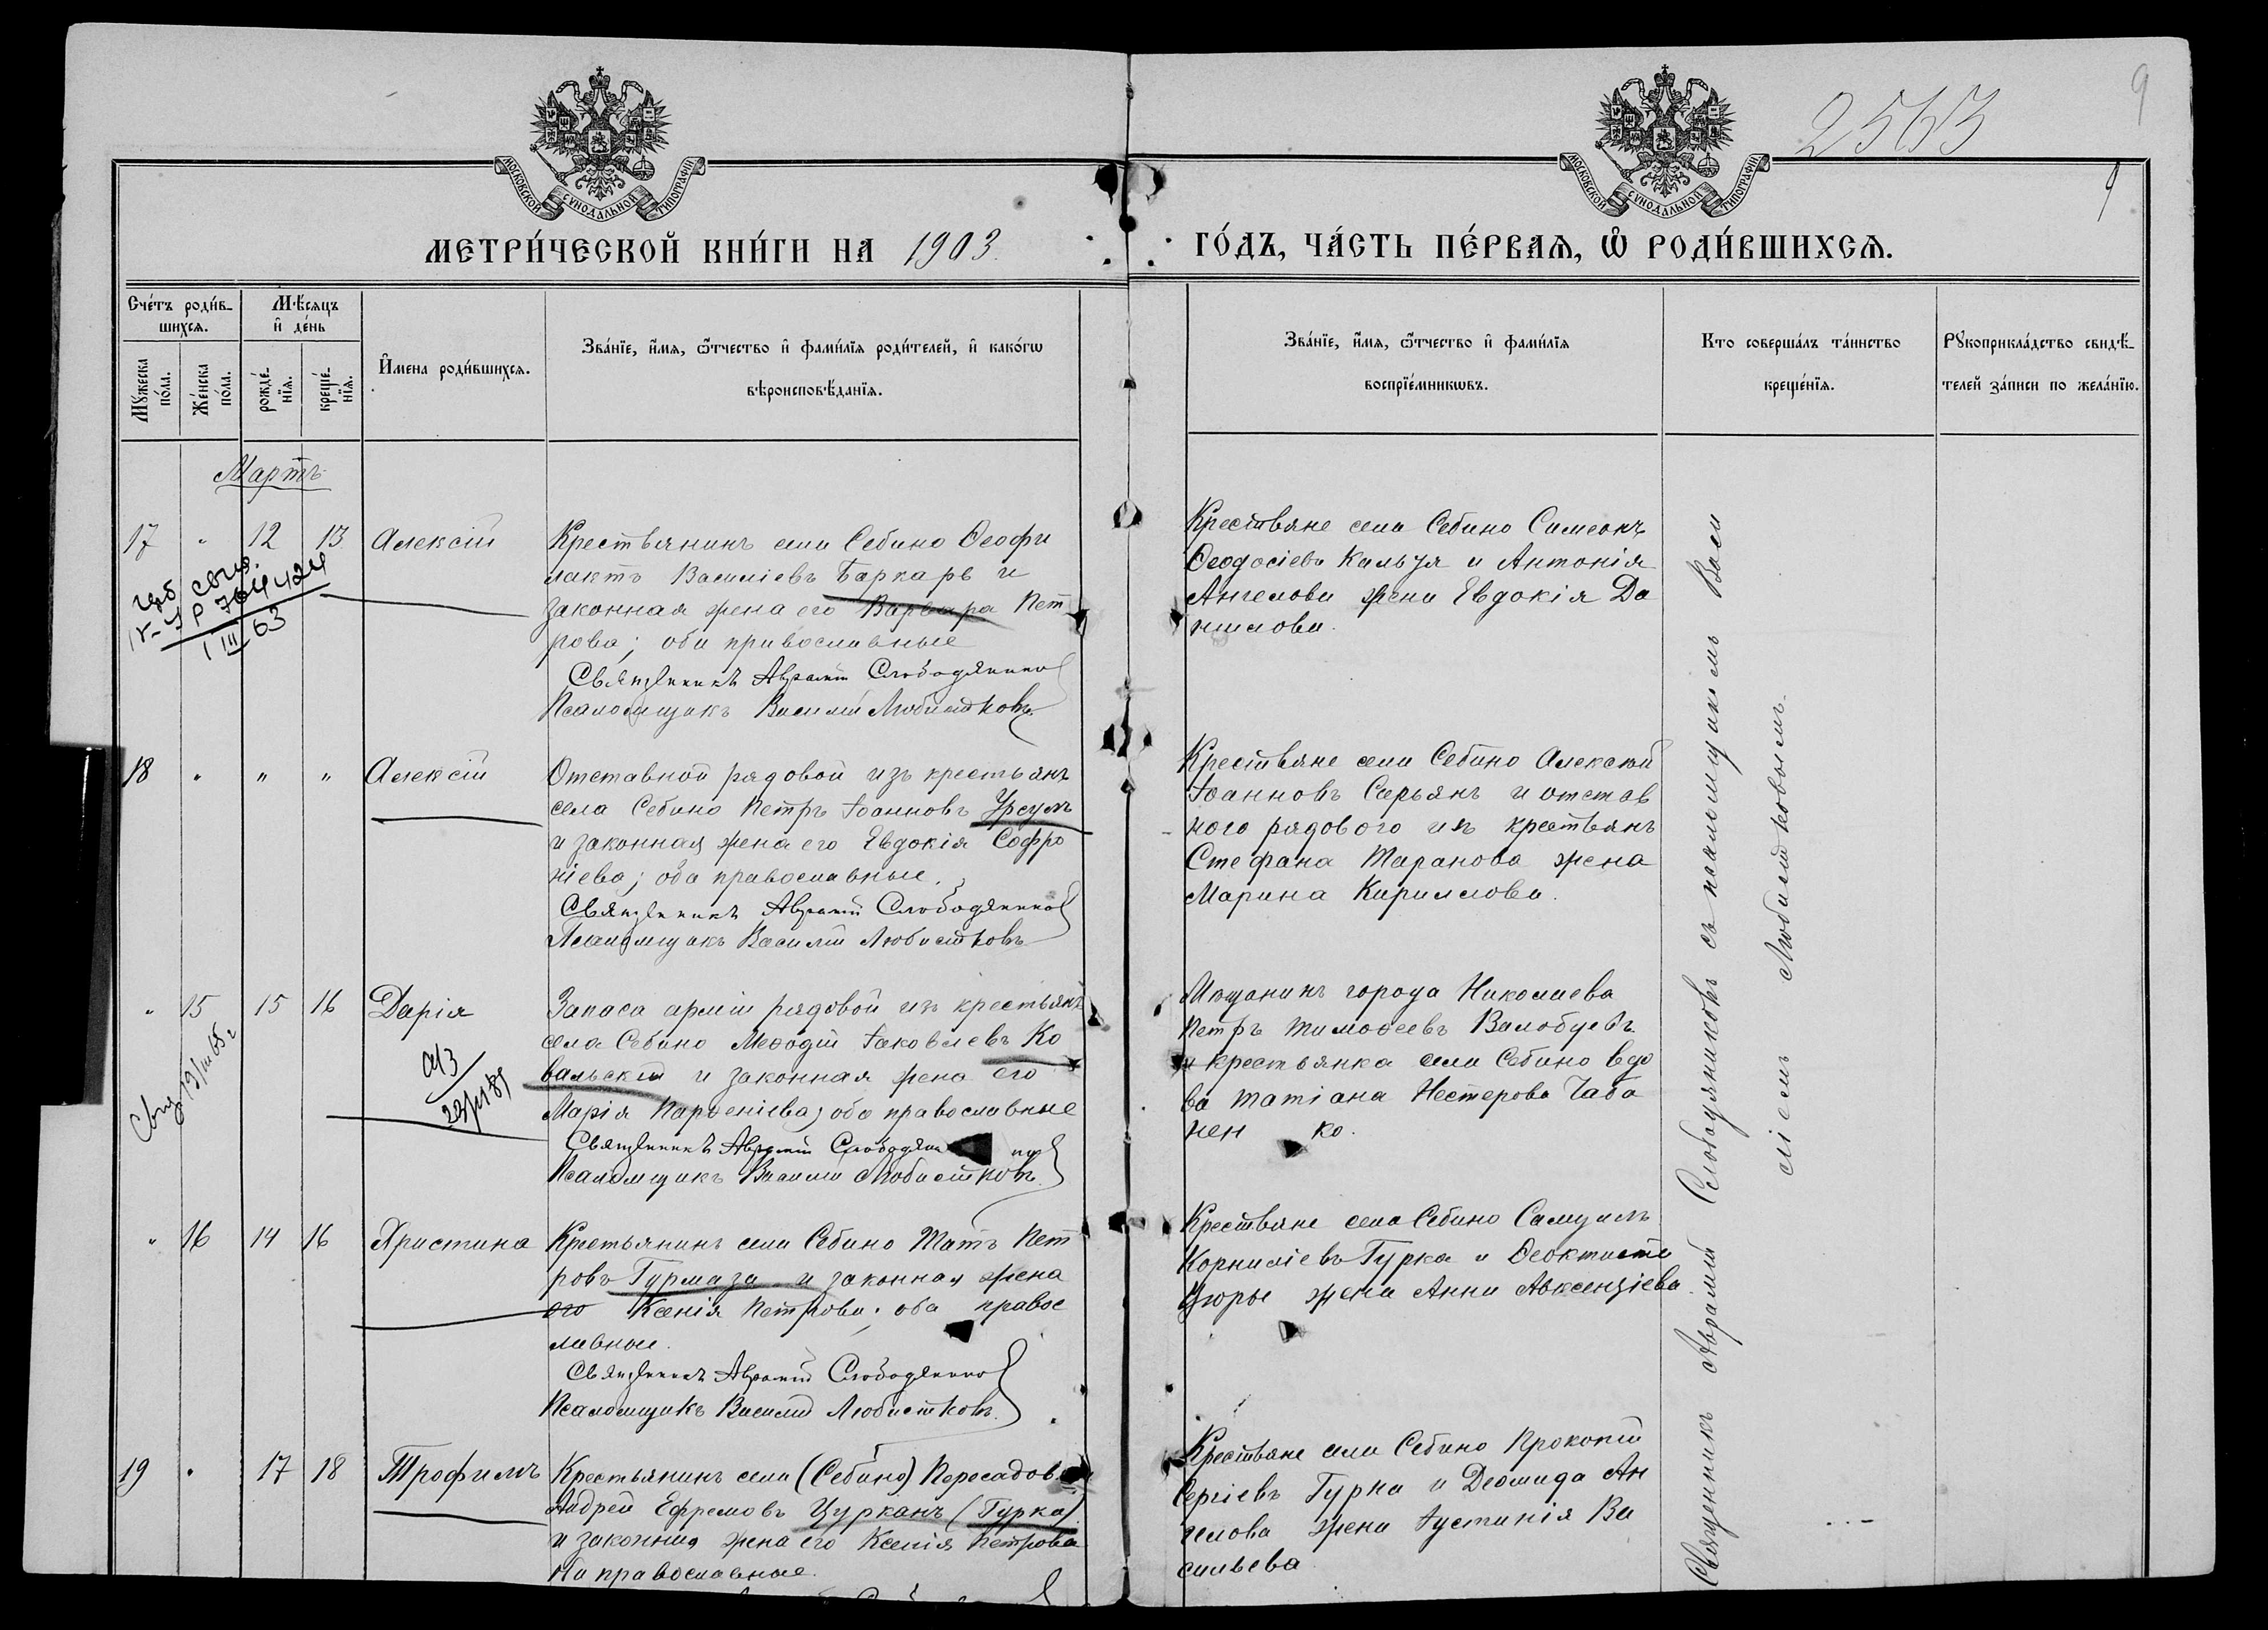 2563
9
9
МОСКОВСКОЙ СУНОДАЛЬНОЙ ТИПОГРАФІИ
МОСКОВСКОЙ СУНОДАЛЬНОЙ ТИПОГРАФІИ
МЕТРИ́ЧЕСКОЙ КНИ́ГИ НА 1903. ГО́ДЪ, ЧА́СТЬ ПЕ́РВАѦ, Ѡ҆ РОДИ́ВШИХСѦ.
Сче́тъ роди́в-
шихсѧ.
Мꙋжеска по́ла.
Же́нска по́ла.
Мѣ́сѧцъ
и҆ де́нь
рожде́-нїѧ.
креще́-нїѧ.
И҆мена роди́вшихсѧ.
Зва́нїе, и҆́мѧ, ѻ҆́тчество и҆ фами́лїѧ роди́телей, и҆ како́гѡ
вѣроисповѣ́данїѧ.
Зва́нїе, и҆́мѧ, ѻ҆́тчество и҆ фами́лїѧ
воспрїе́мникѡвъ.
Кто соверша́лъ та́инство
креще́нїѧ.
Рꙋкоприкла́дство свидѣ́-
телей за́писи по жела́нїю.
Мартъ
17 " 12 13 Алексій
Крестьянинъ села Себино Ѳеофи
лактъ Василіевъ Баркарь и
законная жена его Варвара Пет
рова; оба православные
Священникъ Аврамій Слободяниковъ
Псаломщикъ Василій Любистковъ
Крестьяне села Себино Симеонъ
Ѳеодосіевъ Кальчя и Антонія
Ангелова жена Евдокія Да
нилова.
764424
1 III 63
18 " " " Алексій
Отставной рядовой изъ крестьянъ
села Себино Петръ Іоанновъ Урсулъ
и законная жена его Евдокія Софро
ніева; оба православные.
Священникъ Аврамій Слободяниковъ
Псаломщикъ Василій Любистковъ
Крестьяне села Себино Алексѣй
Іоанновъ Сарьянъ и отстав
ного рядового изъ крестьянъ
Стефана Таранова жена
Марина Кириллова.
" 15 15 16 Дарія
Запаса арміи рядовой изъ крестьянъ
села Себино Меѳодій Іаковлевъ Ко
вальскій и законная жена его
Марія Парѳеніева; оба православные
Священникъ Аврамій Слободяниковъ
Псаломщикъ Василій Любистковъ.
Мѣщанинъ города Николаева
Петръ Тимоѳеевъ Валобуевъ
и крестьянка села Себино вдо
ва Татіана Нестерова Чаба
нен ко.
" 16 14 16 Христина
Крестьянинъ села Себино Татъ Пет
ровъ Гурмаза и законная жена
его Ксенія Петрова; оба правос
лавные.
Священникъ Аврамій Слободяниковъ
Псаломщикъ Василій Любистковъ.
Крестьяне села Себино Самуилъ
Корниліевъ Гурка и Ѳеоктиста
Цюры жена Анна Авксендіева.
19 " 17 18 Трофимъ
Крестьянинъ села (Себино) Пересадовки
Андрей Ефремовъ Цурканъ (Гурка)
и законная жена его Ксенія Петрова
оба православные.
Крестьяне села Себино Прокопій
Сергіевъ Гурка и Деомида Ан
гелова жена Іустинія Ва
сильева
Священникъ Аврамій Слободяниковъ съ псаломщикомъ Васи
ліемъ Любистковымъ.